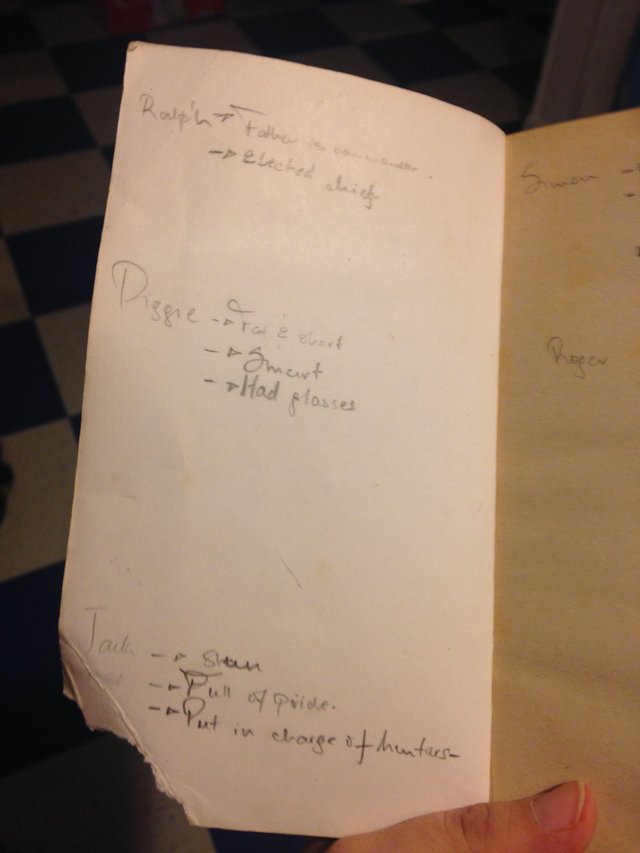 Ralph → Father is commander.
→ Elected chief
Piggie → Fat & short
→ Smart
→ Had glasses
Jack →
→ Full of pride.
→ Put in charge of hunters-
Simon →
Roger